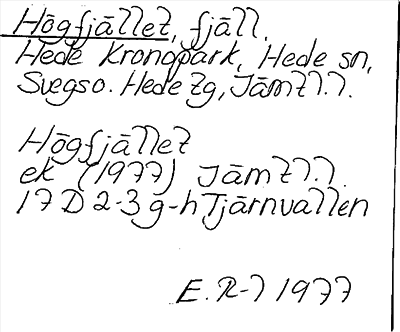 Högfjället, fjäll.
Hede Kronopark, Hede sn,
Svegs o. Hede tg, Jämtl. l.
Högfjället
ek (1977) Jämtl. l.
17 D 2-3 g-h Tjärnvallen
E. R-l 1977